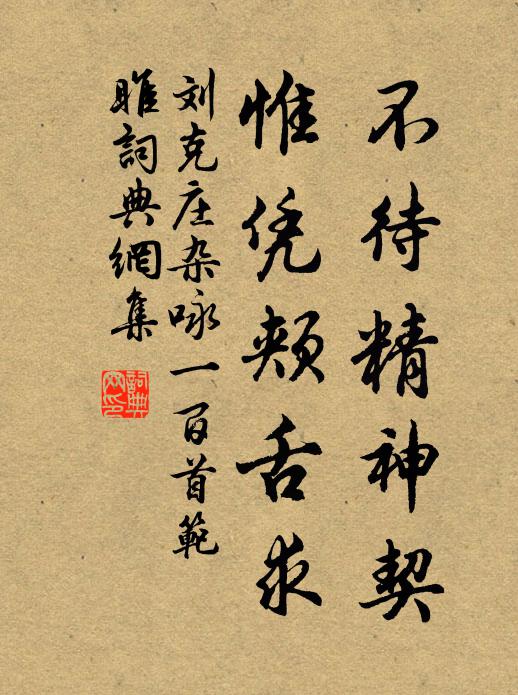 不待精神契
惟凭颊舌求
刘克庄杂咏一百首範
睢詞典網集
詞典
网印